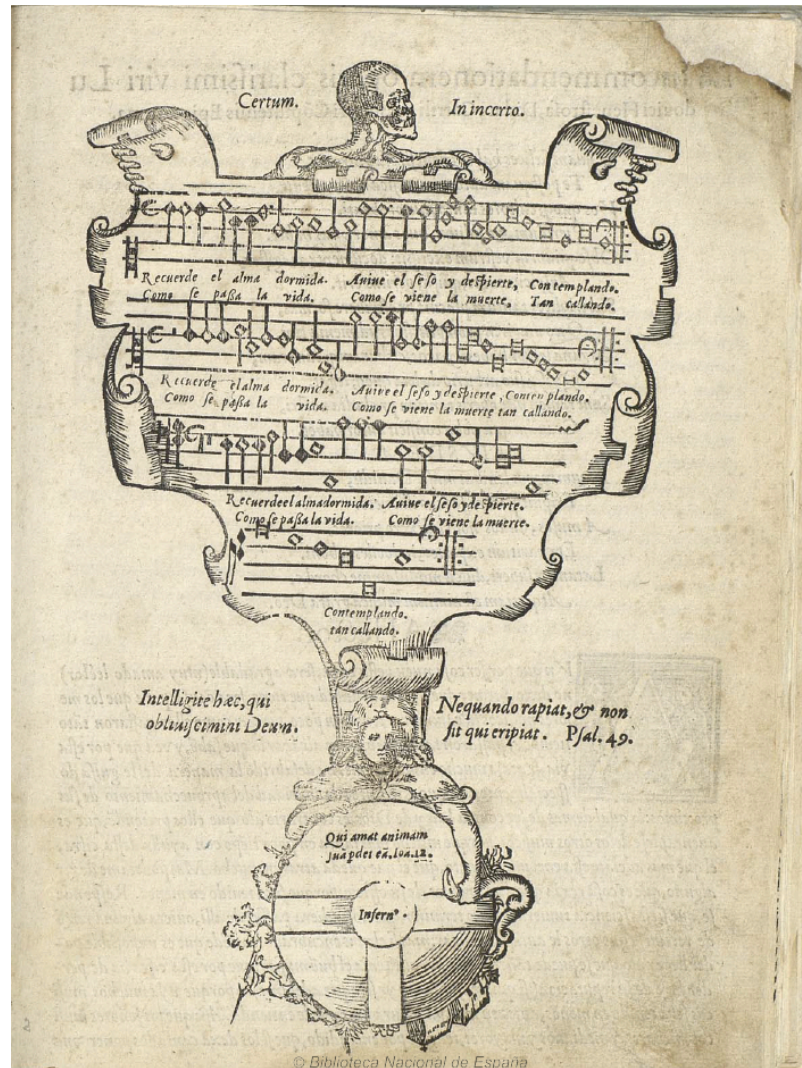 Certum. In incerto.
Recuerde el alma dormida. Auiue el seso y despierte, Contemplando.
Como se paßa la vida. Como se viene la muerte, Tan callando.
Recuerde el alma dormida. Auiue el seso y despierte, Contemplando.
Como se paßa la vida. Como se viene la muerte tan callando.
Recuerde el alma dormida. Auiue el seso y despierte.
Como se paßa la vida. Como se viene la muerte.
Contemplando.
tan callando.
Intelligite hæc, qui
obliuiscimini Deum.
Nequando rapiat, & non
sit qui eripiat. Psal. 49.
Qui amat animam
suã pdet eã. Ioã. 12.
Infernº.
© Biblioteca Nacional de España